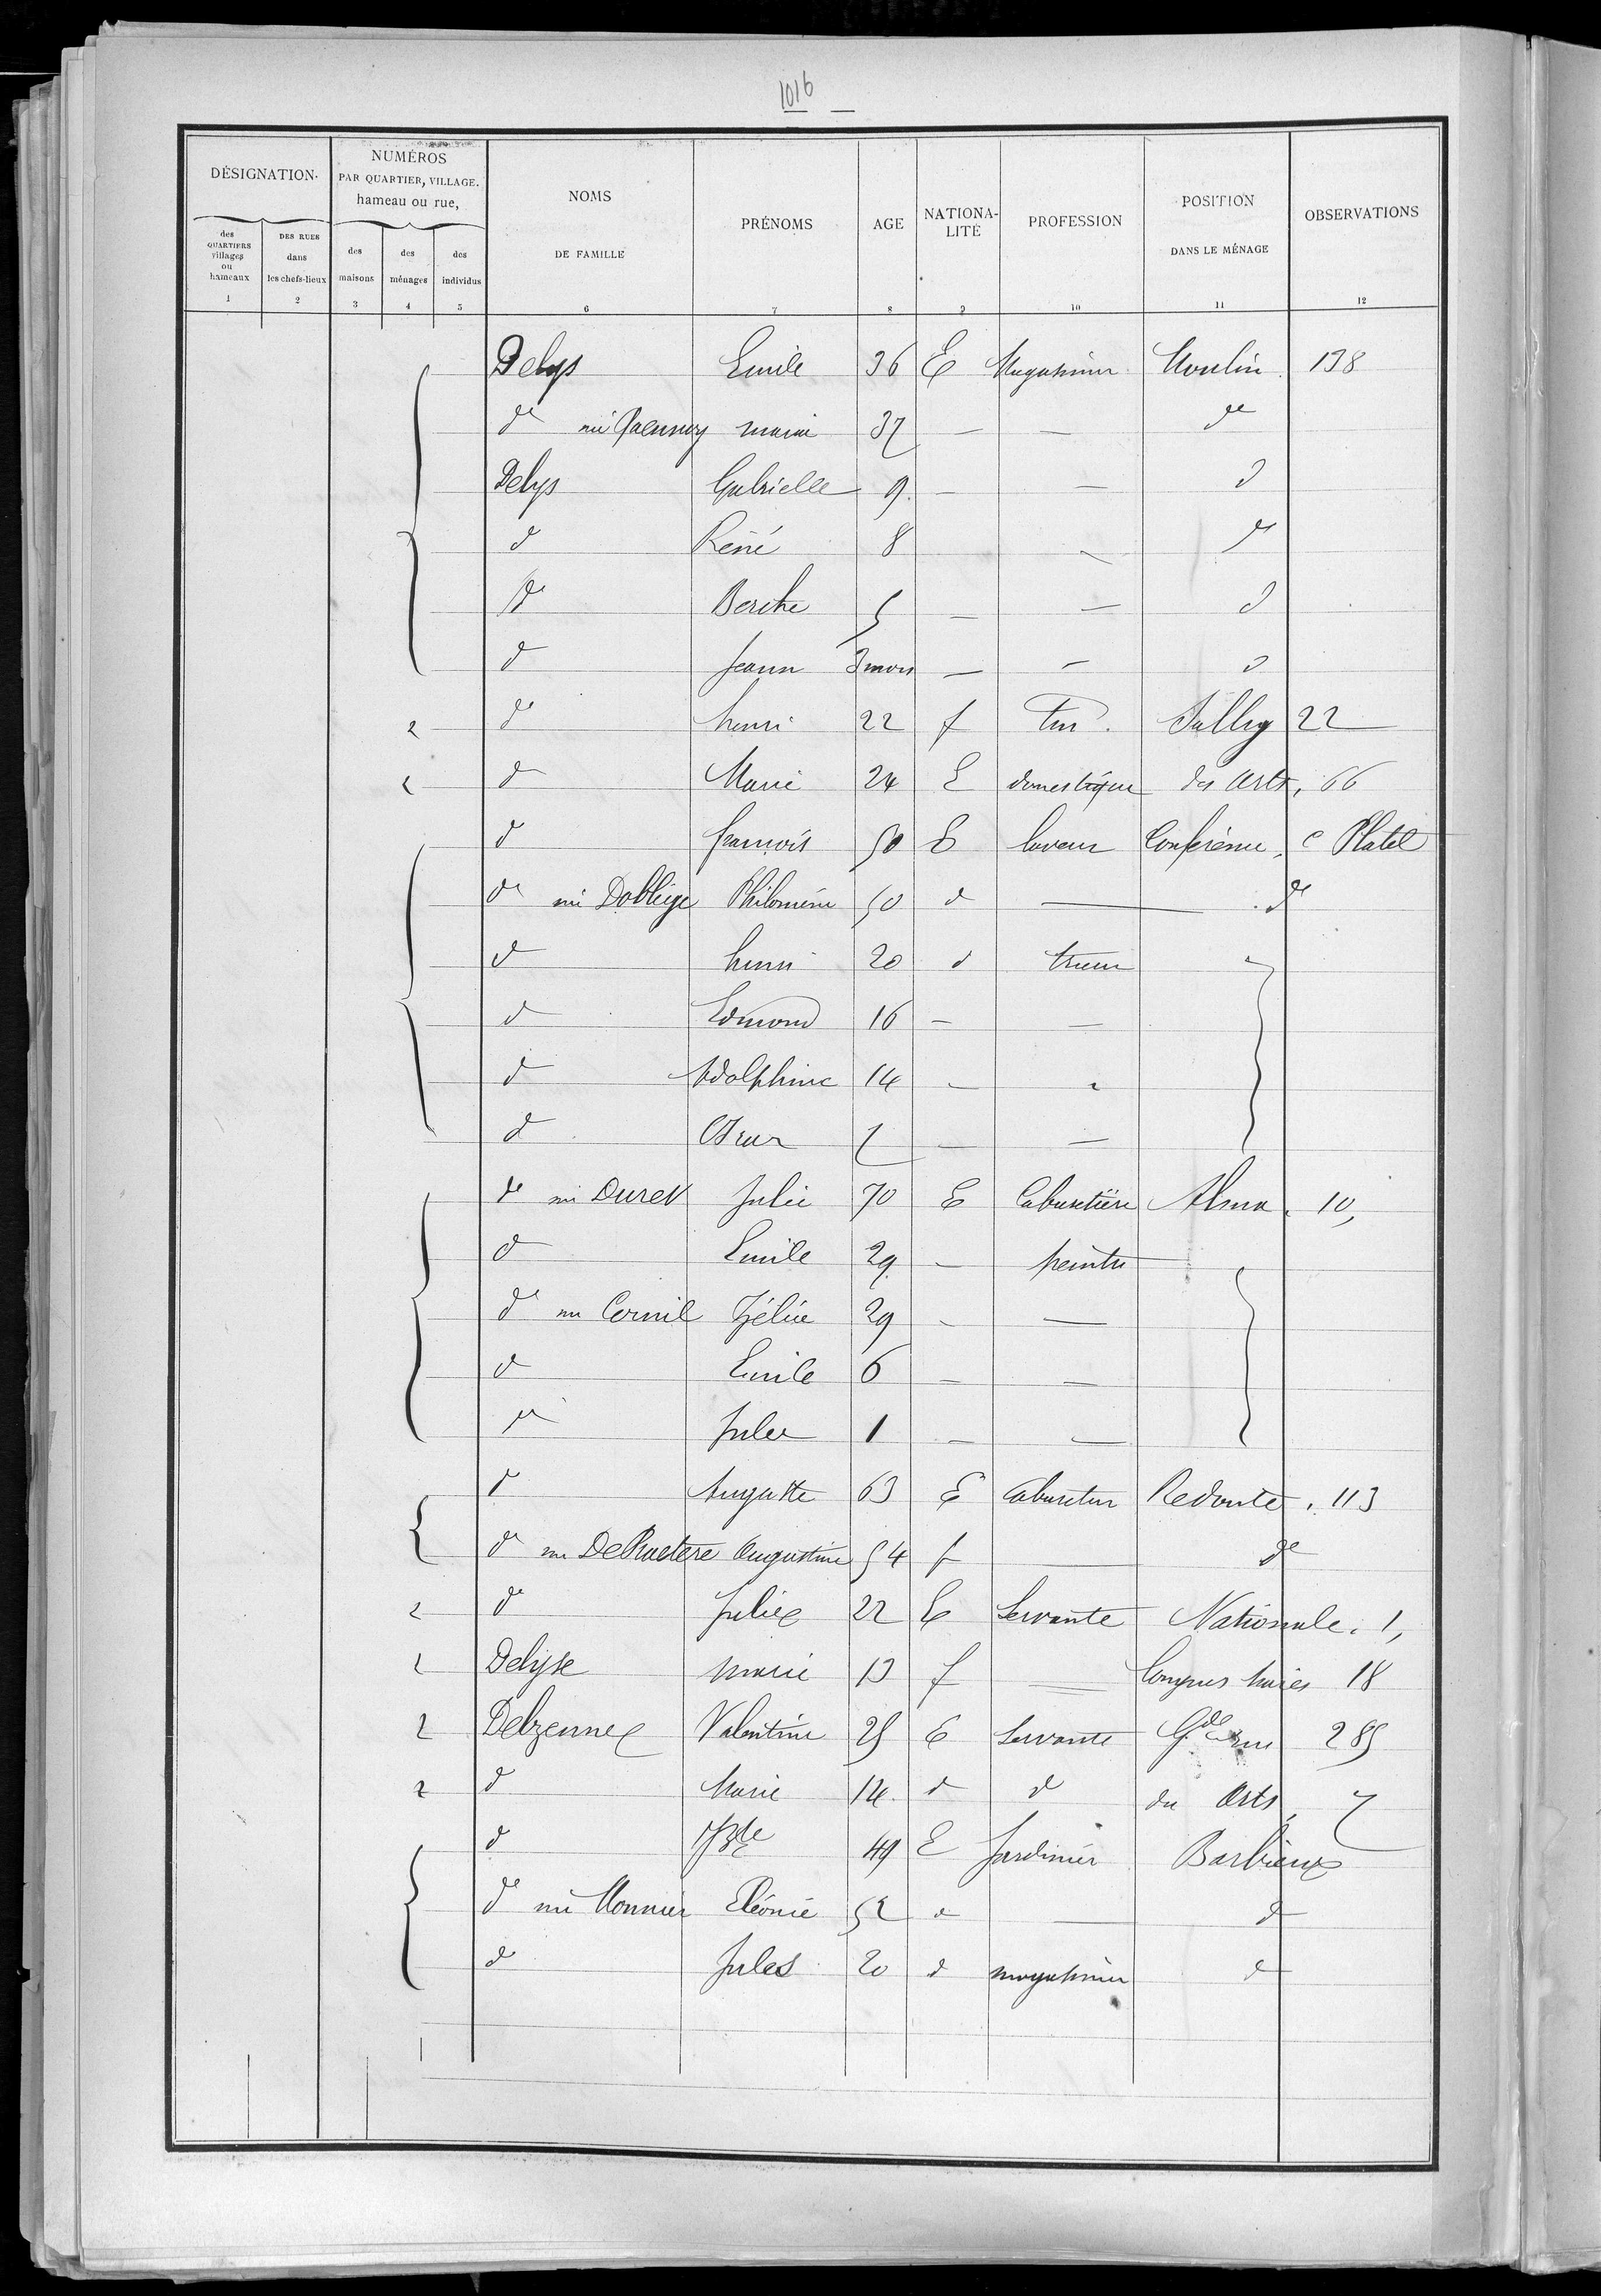 1016
DÉSIGNATION.
NUMÉROS
PAR QUARTIER, VILLAGE.
hameau ou rue,
NOMS
DE FAMILLE
PRÉNOMS
AGE
NATIONA-
LITÉ
PROFESSION
POSITION
DANS LE MÉNAGE
OBSERVATIONS
des
QUARTIERS
villages
ou
hameaux
DES RUES
dans
les chefs-lieux
des
maisons
des
ménages
des
individus
1 2 3 4 5 6 7 8 9 10 11 12
Delys Emile 36 E Magasinier Moulin 138
d° née marie 37 — — d°
Delys Gabrielle 9 — — d
d René 8 — d°
d° Berthe 5 — — d
d Jeann 3 mois — — d
2 d° henri 22 f Sullyy 22
d Marie 24 E domestique des Arts, 66
d francois 50 E laveur Conférence, c Platel
d° née Dobbleige Philomène 50 d — d°
d henri 20 d trieur
d Edmond 16 — —
d Adolphine 14 — —
d Oscar 7 — —
d° née Duret Julie 70 E Cabaretière Alma, 10,
d Emile 29 — peintre
d° née Cornil Zélie 29 — —
d Emile 6 — —
d° Jules 1 — —
d Auguste 63 E Cabaretier Redoute, 113
d° née Augustine 54 f — d°
2 d° Julie 22 E Servante Nationale, 1,
2 Delyse marie 13 f — Longues haies 18
2 Delzenne Valentine 25 E Servante Gde rue 285
2 d Marie 14 d d des Arts, 7
d Jh Bte 49 E Jardinier Barbieux
d° née Monnier Eléonie 52 d — d
d Jules 20 d magasinier d